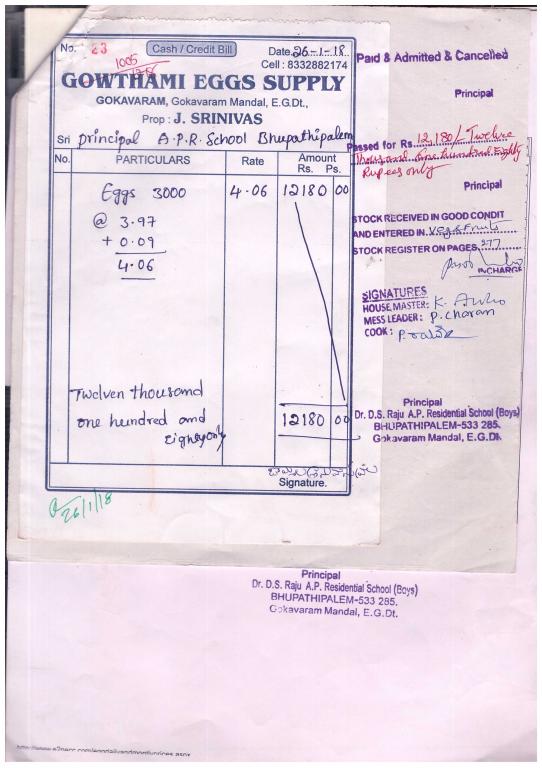 No. 23 Cash / Credit Bill Date 26-1-18
1005
Cell : 8332882174
GOWTHAMI EGGS SUPPLY
GOKAVARAM, Gokavaram Mandal, E.G.Dt.,
Prop : J. SRINIVAS
Sri principal A.P.R. School Bhupathipalem
No. PARTICULARS Rate Amount
Rs. Ps.
Eggs 3000 4.06 12180 00
@ 3.97
+ 0.09
4.06
Twelven thousand
one hundred and 12180 00
eigney only
Signature.
26/1/18
Paid & Admitted & Cancelled
Principal
Passed for Rs 12180/ Twelve
Thousand One hundred Eighty
Rupees only
Principal
STOCK RECEIVED IN GOOD CONDIT
AND ENTERED IN Veg & Fruits
STOCK REGISTER ON PAGES 277
INCHARGE
SIGNATURES
HOUSE MASTER: K.
MESS LEADER: P. Charan
COOK:
Principal
Dr. D.S. Raju A.P. Residential School (Boys)
BHUPATHIPALEM-533 285.
Gokavaram Mandal, E.G.Dt.
Principal
Dr. D.S. Raju A.P. Residential School (Boys)
BHUPATHIPALEM-533 285.
Gokavaram Mandal, E.G.Dt.